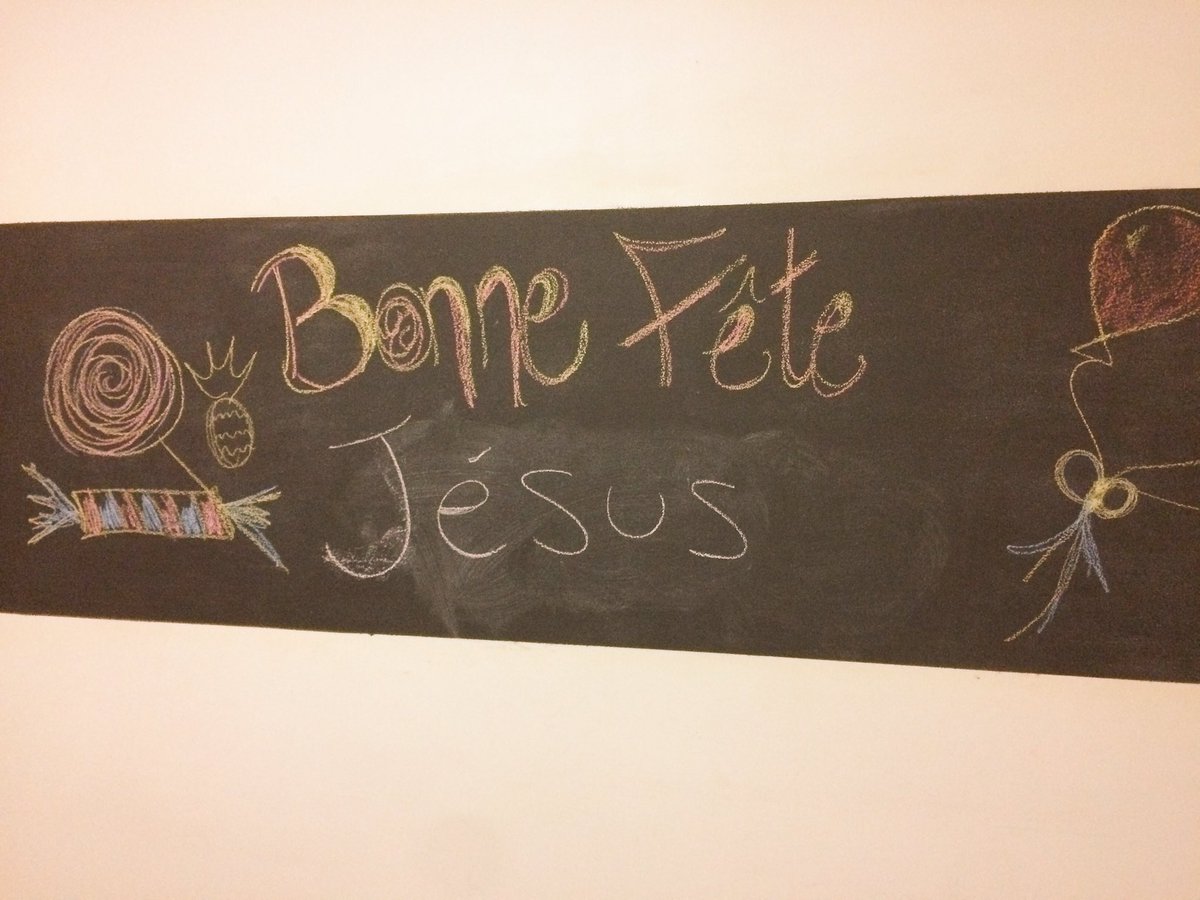 Bonne Fête
Jésus